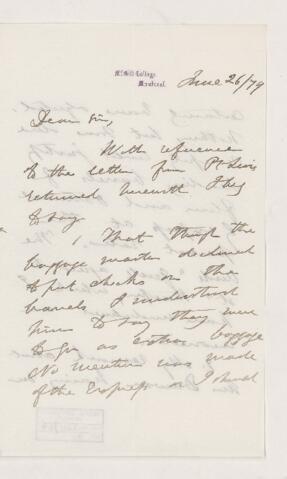 McGill College,
Montreal.
June 26/79
Dear Sir,
With reference
to the letter from Pt Levis
returned herewith I beg
to say
1 That though the
baggage master declined
to put checks on the
barrels I understood
him to say they were
to go as extra baggage
No mention was made
of the Express or I should